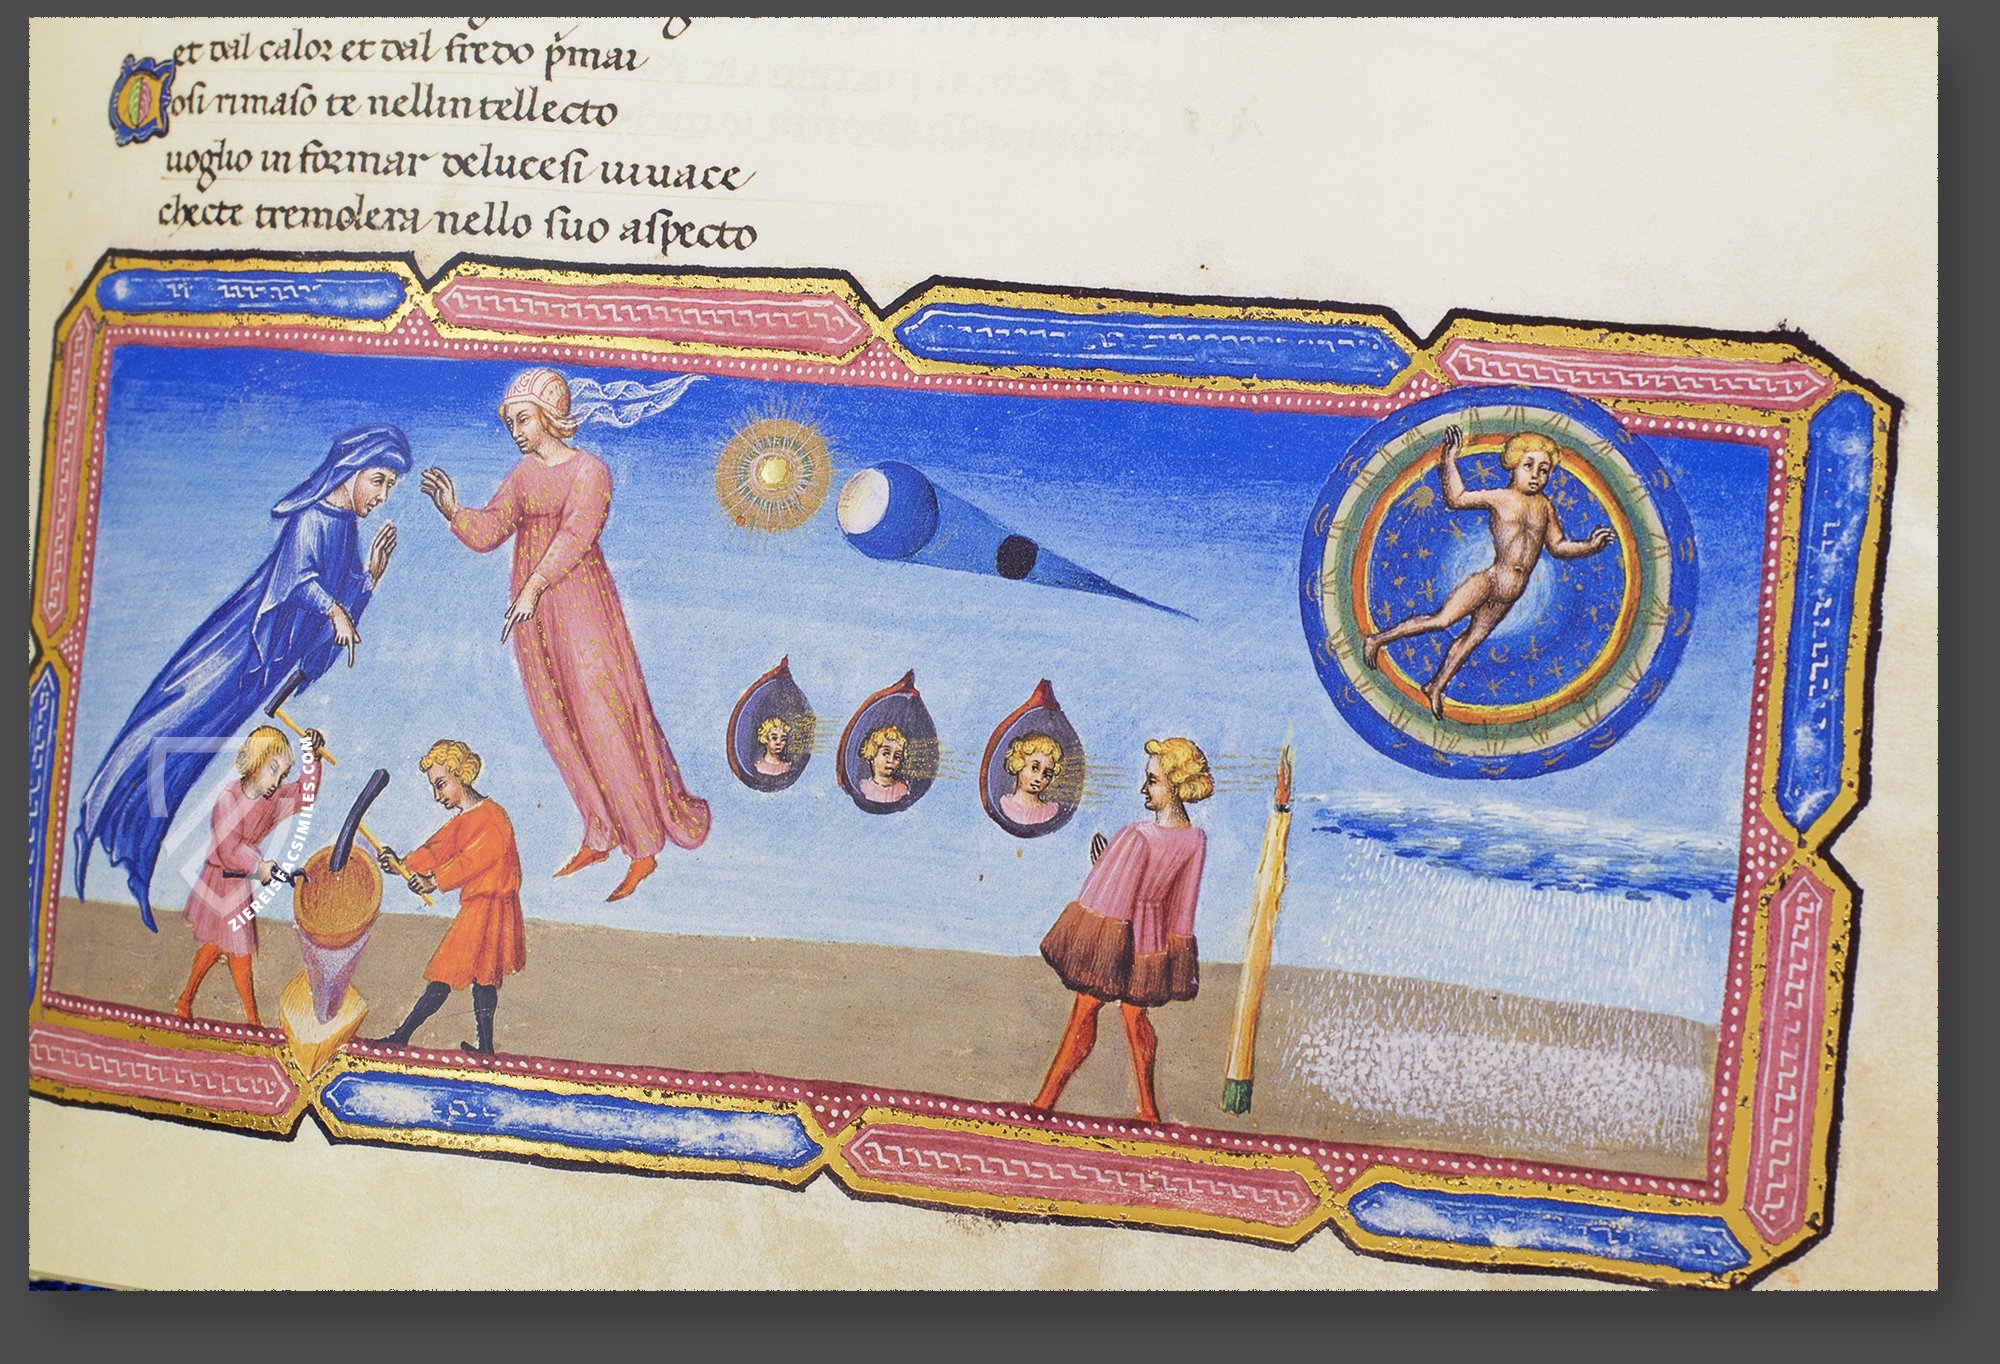 et dal calor et dal fredo p̄mai
Cosi rimaso te nellintellecto
uoglio in formar delucesi uiuace
checte tremolera nello suo aspecto
ZIEREISFACSIMILES.COM